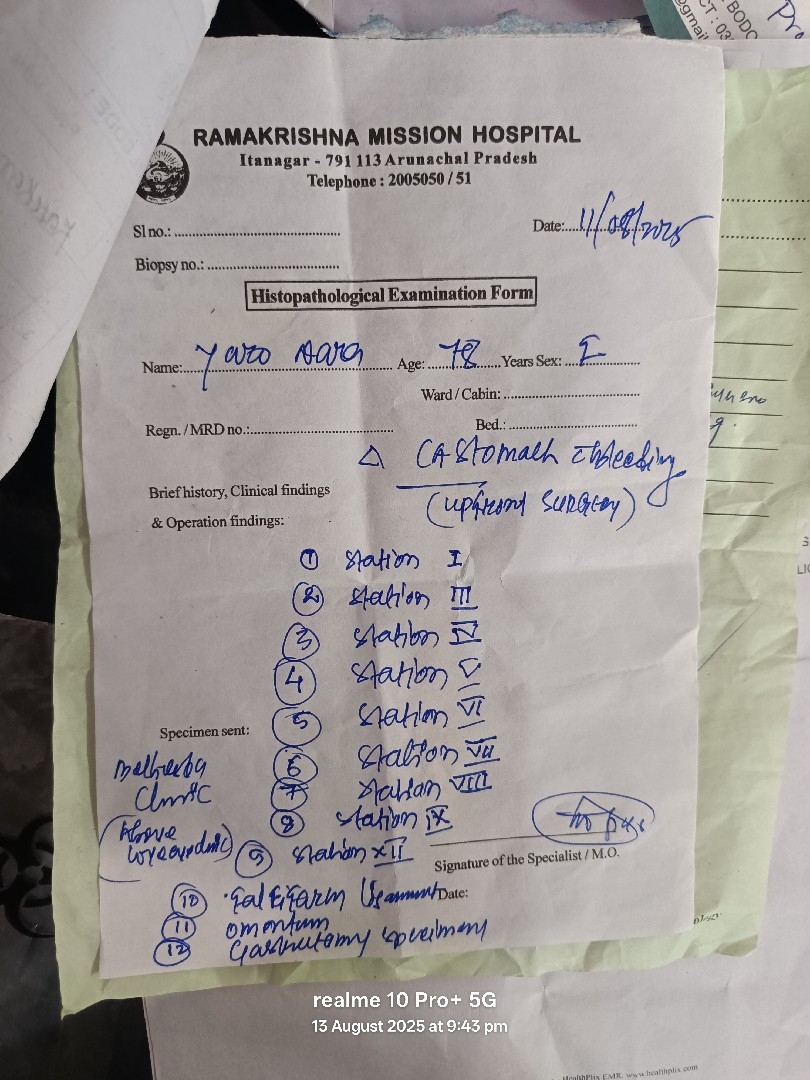 BODO
CT : 03
@gmail
Pro
RAMAKRISHNA MISSION HOSPITAL
Itanagar - 791 113 Arunachal Pradesh
Telephone : 2005050 / 51
Sl no.:
Date: 11/08/2025
Biopsy no.:
Histopathological Examination Form
Name: Age: 78 Years Sex:
Ward / Cabin:
Regn. / MRD no.: Bed.:
Δ CA Stomach bleeding
Brief history, Clinical findings
(upfront surgery)
& Operation findings:
① Station I
② Station III
③ Station IV
④ Station V
⑤ Station VI
Specimen sent:
⑥ Station VII
⑦ Station VIII
Clinic
⑧ Station IX
(Above
⑨ Station XII
Signature of the Specialist / M.O.
⑩ Falciform Ligament
Date:
⑪ omentum
⑫ Gastrectomy specimen
realme 10 Pro+ 5G
13 August 2025 at 9:43 pm
HealthPlix EMR. www.healthplix.com